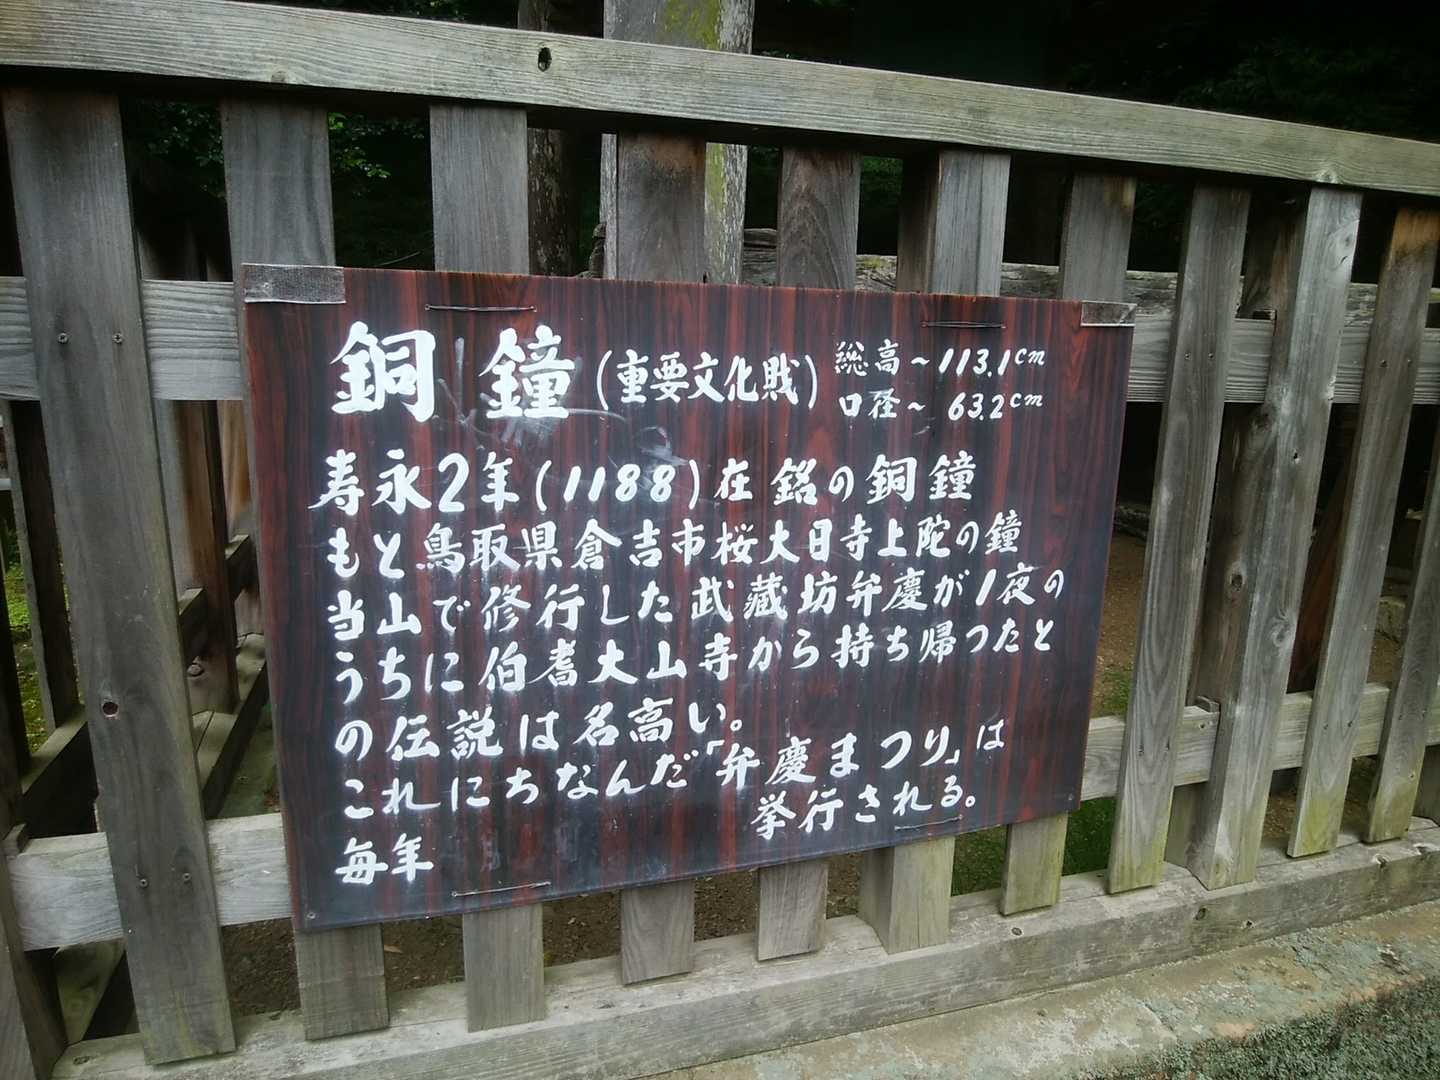 銅鐘(重要文化財) 総高~113.1cm
口径~ 63.2cm
寿永2年(1188)在銘の銅鐘
もと鳥取県倉吉市桜大日寺上陀の鐘
当山で修行した武蔵坊弁慶が1夜の
うちに伯耆大山寺から持ち帰つたと
の伝説は名高い。
これにちなんだ「弁慶まつり」は
毎年 挙行される。